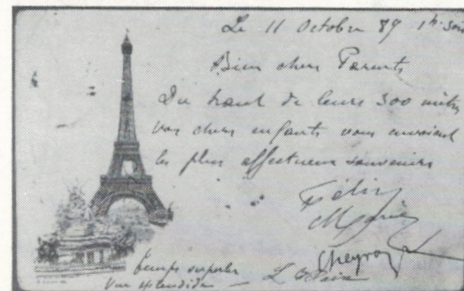 Le 11 Octobre 89 1h soir
Bien chers Parents
Du haut de leurs 300 mètres
vos chers enfants vous envoient
les plus affectueux souvenirs
Félix
Marie
Cheyron
temps superbe
Vue splendide